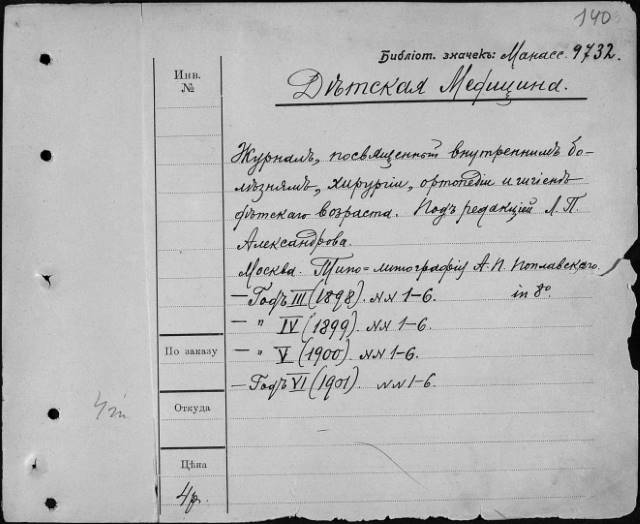 140
Библіот. значекъ: Манасс. 9732.
Инв.
№
Дѣтская Медицина.
Журналъ, посвященный внутреннимъ бо-
лѣзнямъ, хирургіи, ортопедіи и гигіенѣ
дѣтскаго возраста. Подъ редакціей Л. П.
Александрова.
Москва. Типо-литографія А. П. Поплавскаго.
— Годъ III (1898). NN 1-6. in 8º
— " IV (1899) NN 1-6.
По заказу
— " V (1900). NN 1-6.
— Годъ VI (1901). NN 1-6.
Откуда
Цѣна
4р.